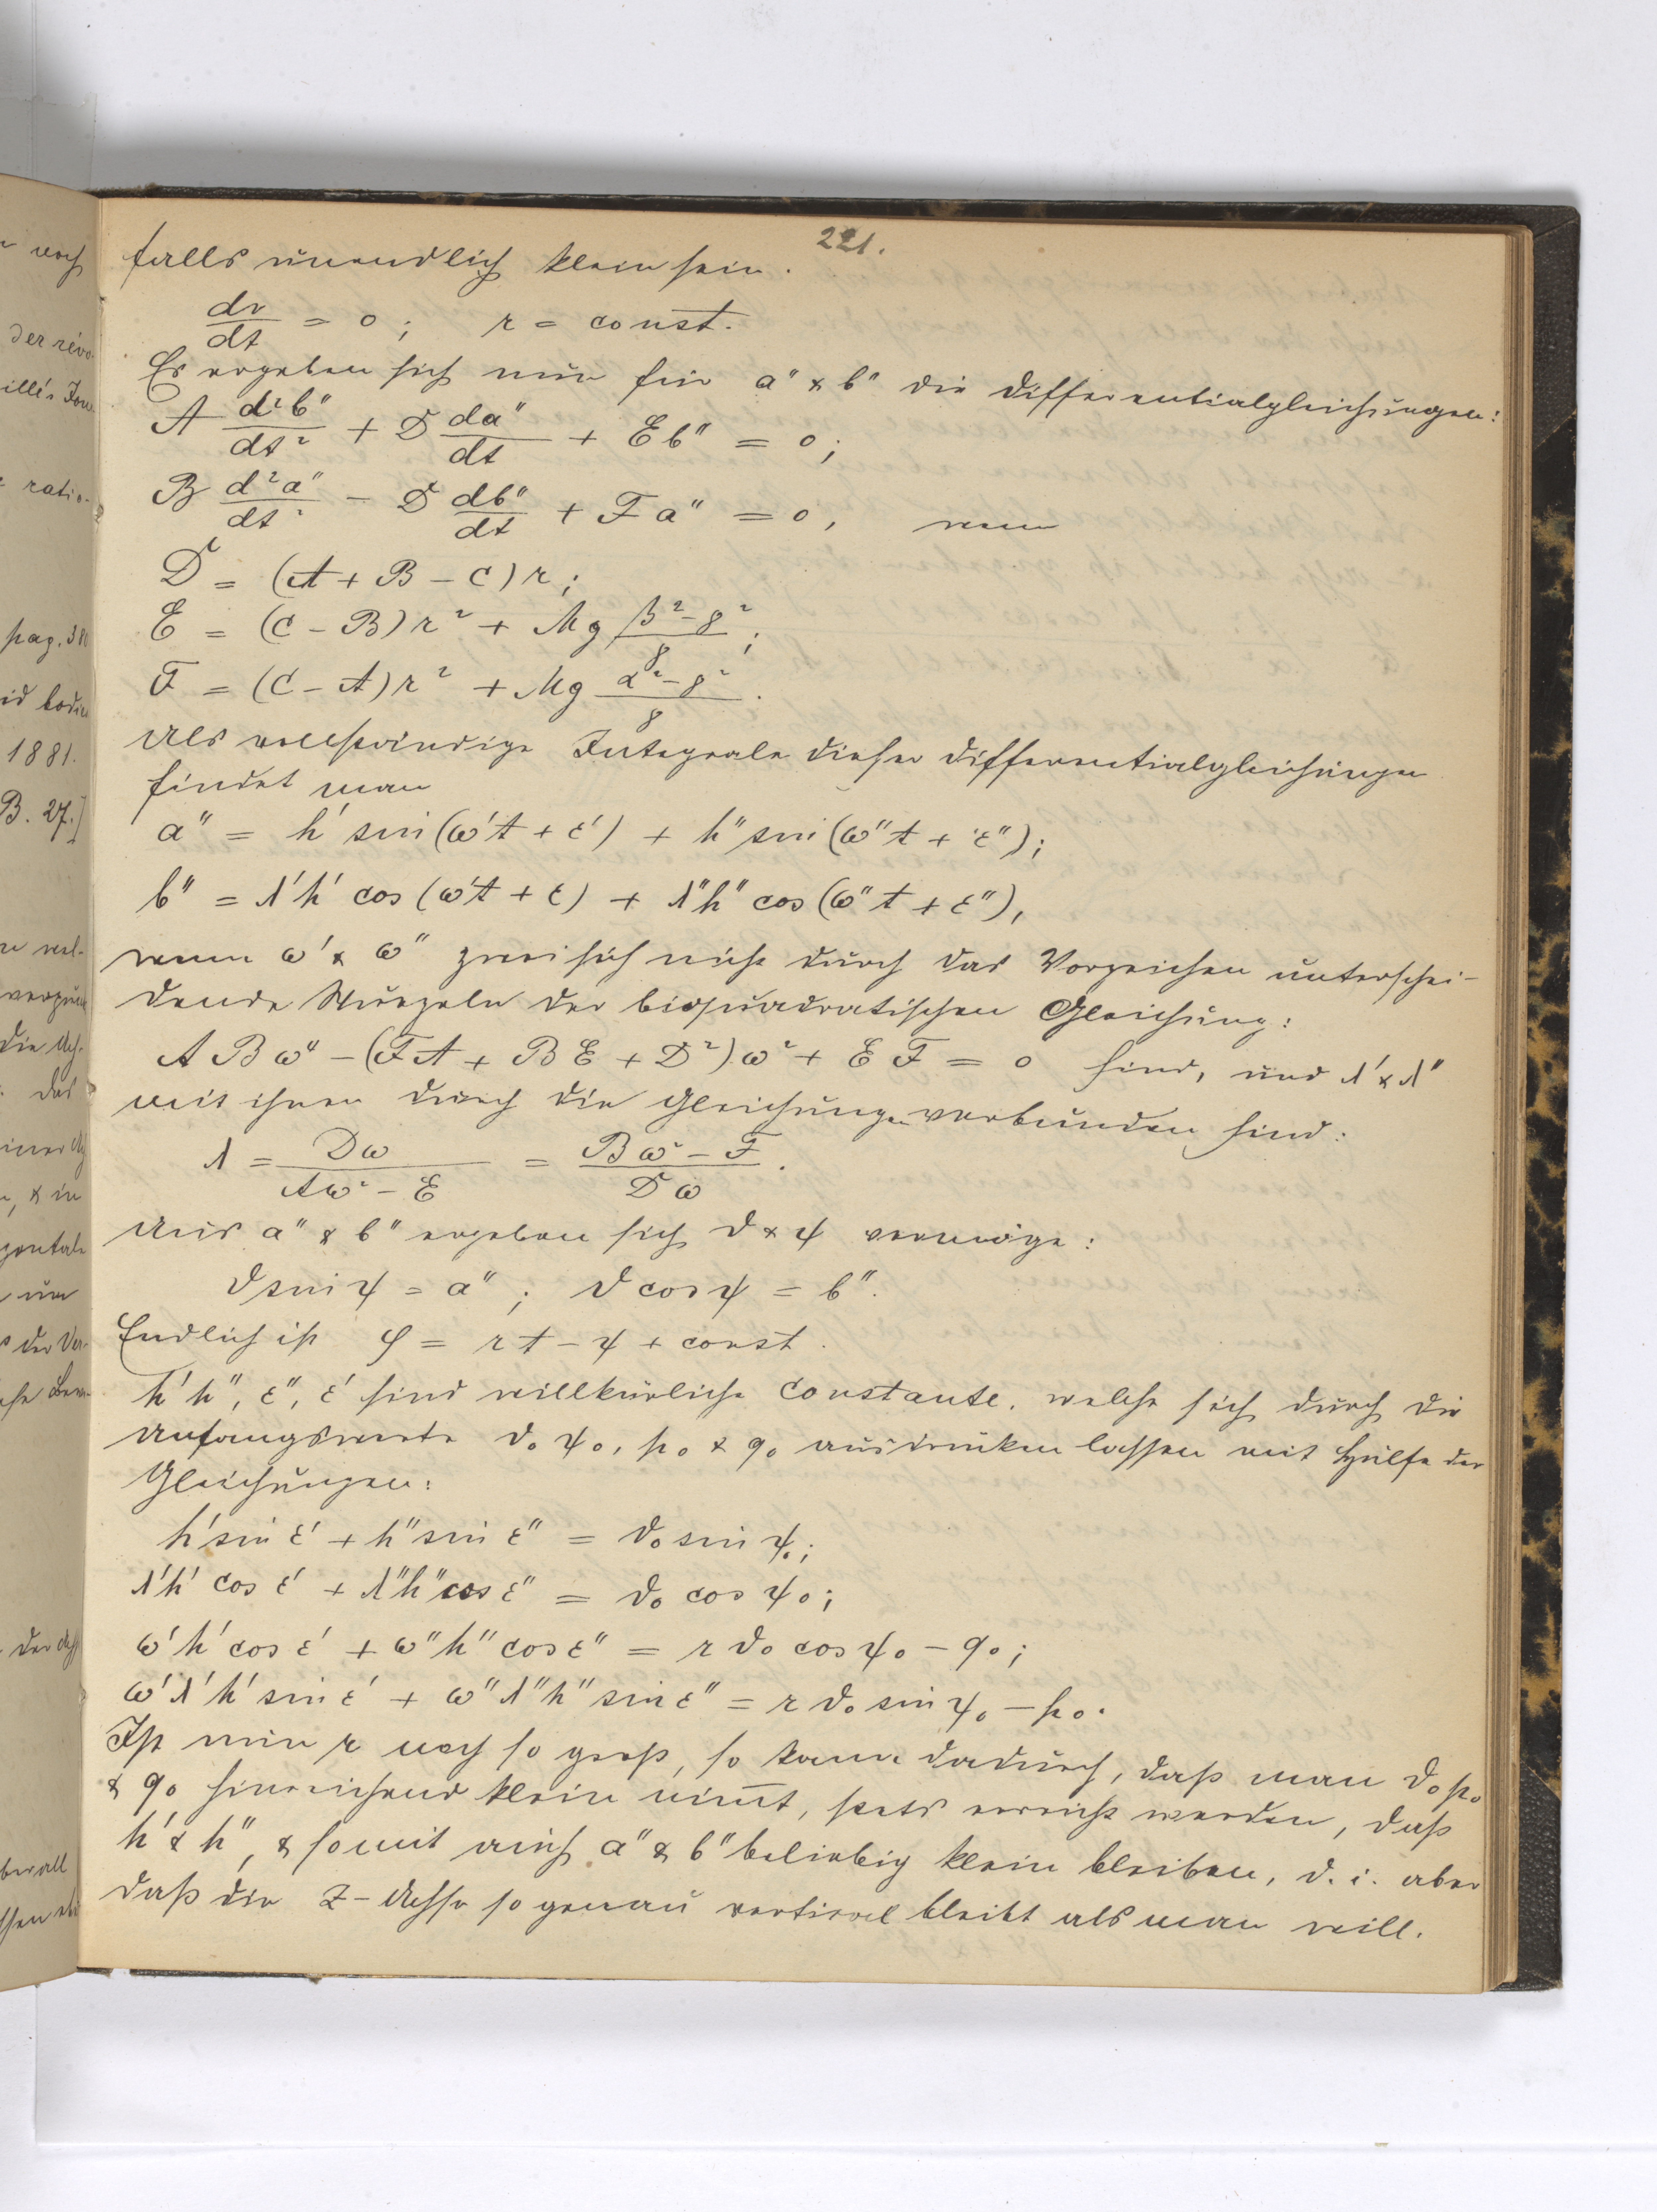 221.
falls unendlich klein sein.
dr/dt = 0; r = const.
Es ergeben sich nun für a″ & b″ die Differentialgleichungen:
A d²b″/dt² + D da″/dt + E b″ = 0;
B d²a″/dt² − D db″/dt + F a″ = 0, wenn
D = (A + B − C) r;
E = (C − B) r² + Mg (β² − γ²)/γ;
F = (C − A) r² + Mg (α² − γ²)/γ.
Als vollständige Integrale dieser Differentialgleichungen
findet man
a″ = h′ sin (ω′t + ε′) + h″ sin (ω″t + ε″);
b″ = λ′h′ cos (ω′t + ε) + λ″h″ cos (ω″t + ε″),
wenn ω′ & ω″ zwei sich nicht durch das Vorzeichen unterschei-
dende Wurzeln der biquadratischen Gleichung:
A B ω⁴ − (F A + B E + D²) ω² + E F = 0 sind, und λ′ & λ″
mit ihnen durch die Gleichungen verbunden sind:
λ = Dω/(Aω² − E) = (Bω² − F)/(Dω).
Aus a″ & b″ ergeben sich ϑ & ψ vermöge:
ϑ sin ψ = a″; ϑ cos ψ = b″.
Endlich ist φ = rt − ψ + const.
h′ h″, ε″, ε′ sind willkürliche Constante, welche sich durch die
Anfangswerte ϑ₀ ψ₀, p₀ & q₀ ausdrüken lassen mit Hülfe der
Gleichungen:
h′ sin ε′ + h″ sin ε″ = ϑ₀ sin ψ₀;
λ′h′ cos ε′ + λ″h″ cos ε″ = ϑ₀ cos ψ₀;
ω′h′ cos ε′ + ω″h″ cos ε″ = r ϑ₀ cos ψ₀ − q₀;
ω′λ′h′ sin ε′ + ω″λ″h″ sin ε″ = r ϑ₀ sin ψ₀ − p₀.
Ist nun r noch so groß, so kann dadurch, daß man ϑ₀ p₀
& q₀ hinreichend klein nim̄t, stets erreicht werden, daß
h′ & h″, & somit auch a″ & b″ beliebig klein bleiben, d. i. aber
daß die Z-Achse so genau vertical bleibt als man will.
noch
der revo
ille's Jour
ratio-
pag. 38
id bodie
1881.
B. 27.]